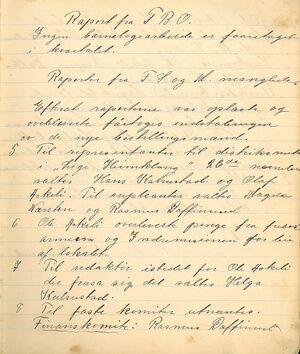 Raport fra T. B. O.
Ingen barnelogsarbeide er foretaget
i kvartalet.
Raporter fra T. S og M. manglede.
Efterat raporterne var oplæste og
overleverte foretoges indstalationen
av de nye bestillingsmænd.
5 Til representanter til distriksmøte
i "Loge Heimklang" 26de november
valtes Hans Kalvustad og Olaf
Askeli. Til suplenter valtes Magnus
Næsten og Rasmus Daffinrud
6 Ole Askeli overleverte penge fra frelses
armeen og Indremisionen for leie
af lokalet.
7 Til redaktør istedet for Ole Askeli
der frasa sig det valtes Helga
Kalvustad.
8 Til faste komiter utnævntes.
Finanskomite: Rasmus Daffinrud